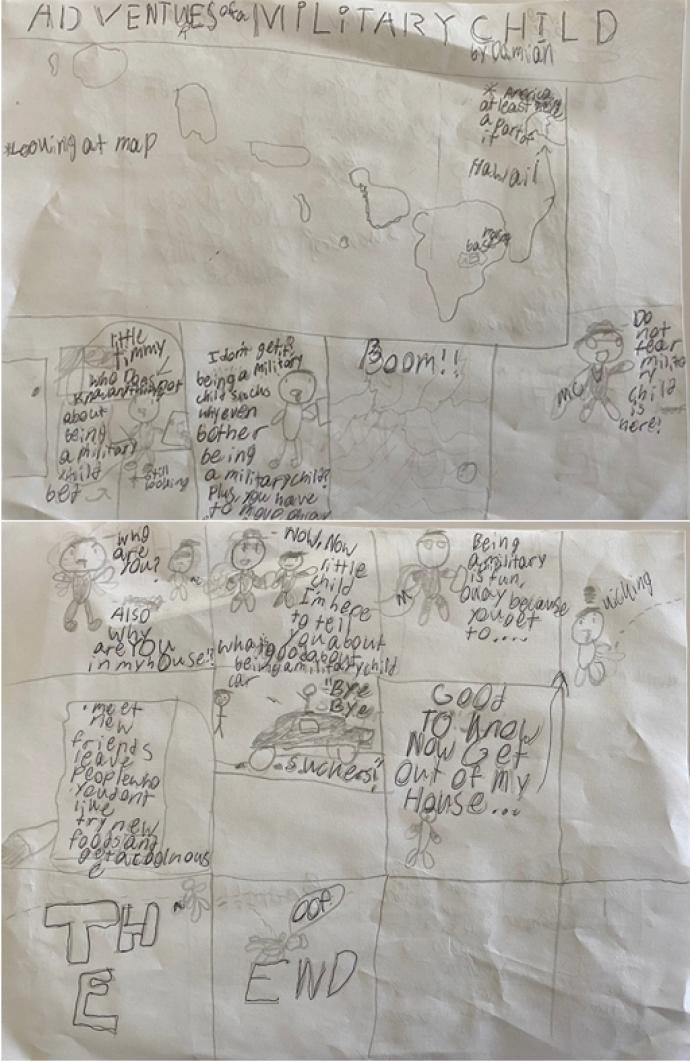 ADVENTURES of a MILITARY CHILD
by Damian
*Looking at map
* America
at least here
a part of
it
Hawaii
base
little
Timmy
who Does
not
about
being
a military
child
bef
still
looking
I don't get it?
being a military
child sucks
why even
bother
being
a military child?
Plus, you have
to move away
Boom!!
MC
Do
not
fear
milita
ry
child
is
here!
-who
are
you?
Also
why
are YOU
in my house!?
-Now, Now
little
child
I'm here
to tell
you about
what's good about
being a military child
M
Being
a military
is fun,
okay because
you get
to....
•meet
new
friends
leave
people who
you dont
like
try new
foods and
get a cool hous
e
car
"Bye
Bye
suckers!"
Good
To Know
Now Get
out of my
House...
THE
OOF
END